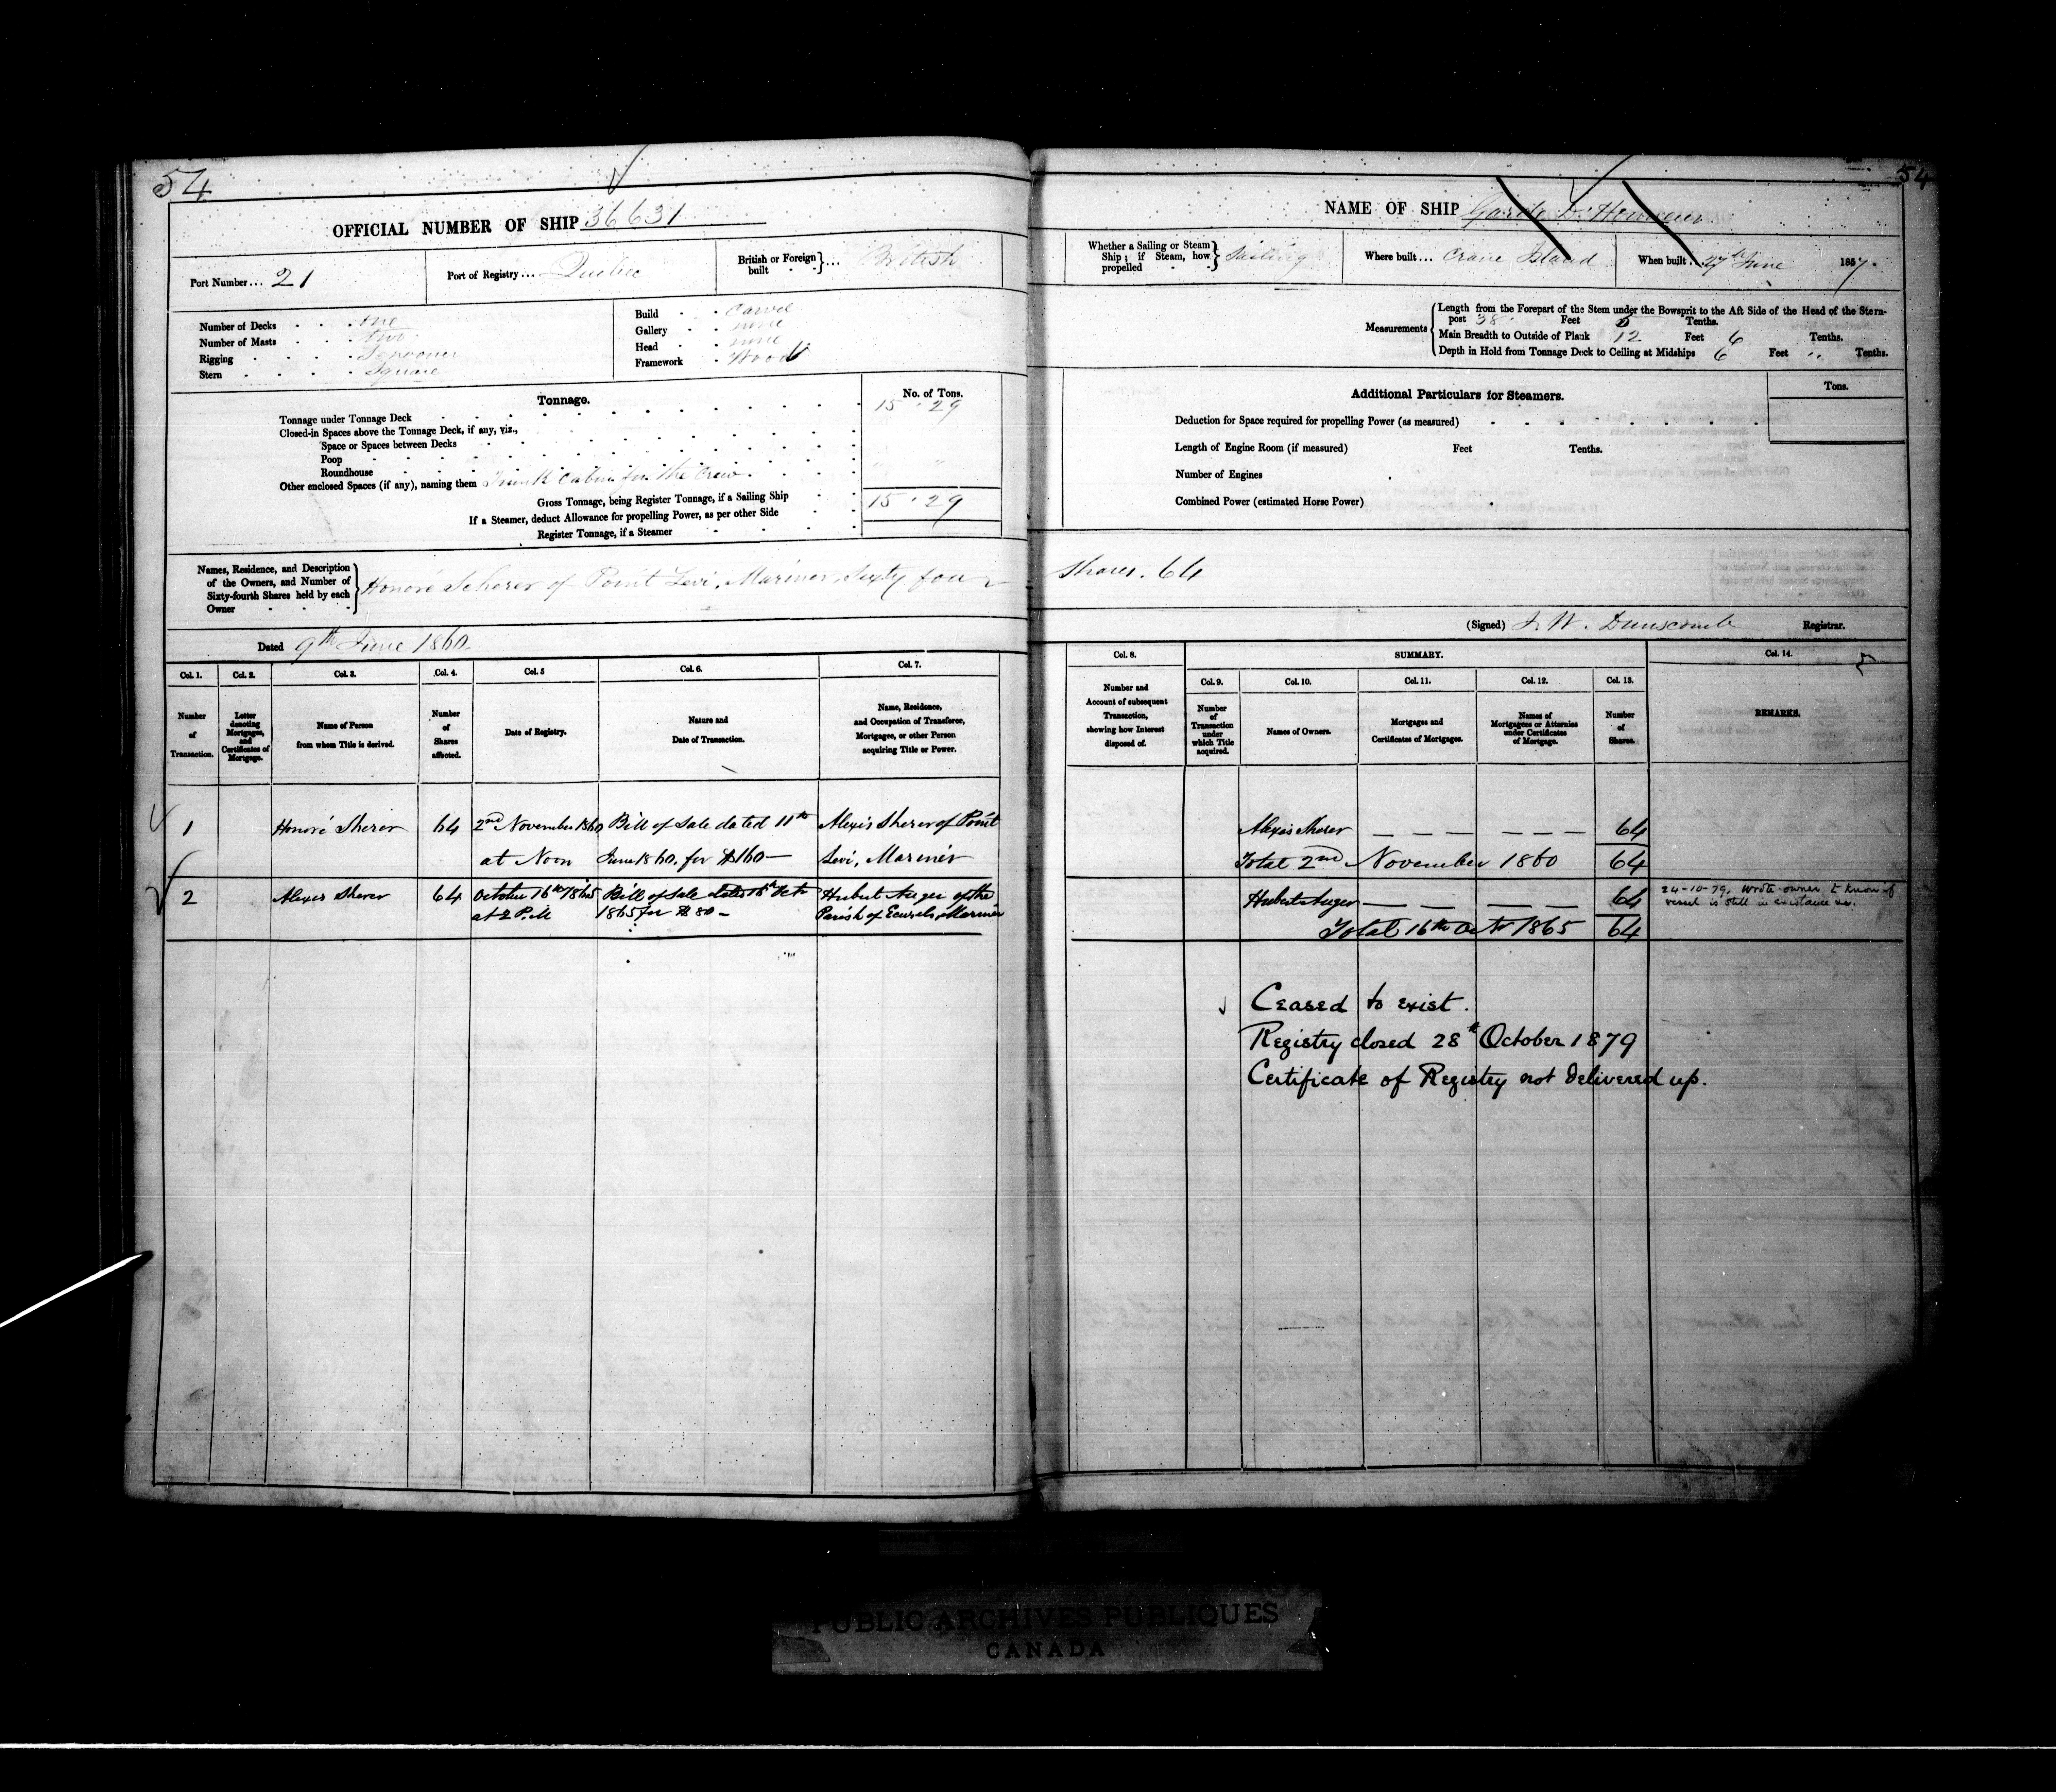 54
OFFICIAL NUMBER OF SHIP 36631
Port Number... 21
Port of Registry... Quebec
British or Foreign built }... British
Number of Decks . . . one
Number of Masts . . . two
Rigging . . . . Schooner
Stern . . . . Square
Build . . Carvel
Gallery . . none
Head . . none
Framework . Wood
Tonnage.
No. of Tons.
Tonnage under Tonnage Deck 15 . 29
Closed-in Spaces above the Tonnage Deck, if any, viz.,
Space or Spaces between Decks
Poop
Roundhouse
Other enclosed Spaces (if any), naming them Trunk Cabin for the Crew. " "
Gross Tonnage, being Register Tonnage, if a Sailing Ship 15 . 29
If a Steamer, deduct Allowance for propelling Power, as per other Side
Register Tonnage, if a Steamer
Names, Residence, and Description of the Owners, and Number of Sixty-fourth Shares held by each Owner } Honoré Scherer of Point Levi, Mariner, Sixty four
Dated 9th June 1860
Col. 1. Col. 2. Col. 3. Col. 4. Col. 5 Col. 6. Col. 7.
Number of Transaction.
Letter denoting Mortgages, and Certificates of Mortgage.
Name of Person from whom Title is derived.
Number of Shares affected.
Date of Registry.
Nature and Date of Transaction.
Name, Residence, and Occupation of Transferee, Mortgagee, or other Person acquiring Title or Power.
1 Honoré Sherer 64 2nd November 1860 Bill of Sale dated 11th Alexis Sherer of Point
at Noon June 1860. for $160— Levi, Mariner
2 Alexis Sherer 64 October 16th 1865 Bill of Sale dated 16th Octr Hubert Auger of the
at 2 P.M 1865 for $80— Parish of Mariner
54
NAME OF SHIP Garde D'Honneur
Whether a Sailing or Steam Ship; if Steam, how propelled } Sailing
Where built... Crane Island
When built... 27th June 1857.
Measurements { Length from the Forepart of the Stem under the Bowsprit to the Aft Side of the Head of the Stern-
post 38 Feet Tenths.
Main Breadth to Outside of Plank 12 Feet 6 Tenths.
Depth in Hold from Tonnage Deck to Ceiling at Midships 6 Feet " Tenths.
Additional Particulars for Steamers.
Tons.
Deduction for Space required for propelling Power (as measured)
Length of Engine Room (if measured) Feet Tenths.
Number of Engines
Combined Power (estimated Horse Power)
Shares. 64
(Signed) J. W. Dunscomb Registrar.
Col. 8. SUMMARY. Col. 14.
Col. 9. Col. 10. Col. 11. Col. 12. Col. 13.
Number and Account of subsequent Transaction, showing how Interest disposed of.
Number of Transaction under which Title acquired.
Names of Owners.
Mortgages and Certificates of Mortgages.
Names of Mortgagees or Attornies under Certificates of Mortgage.
Number of Shares.
REMARKS.
Alexis Sherer — — — — — — 64
Total 2nd November 1860 64
Hubert Auger — — — — 64 24-10-79, Wrote owner to know if
vessel is still in existance &c.
Total 16th Octr 1865 64
Ceased to exist.
Registry closed 28th October 1879
Certificate of Registry not delivered up.
PUBLIC ARCHIVES PUBLIQUES
CANADA